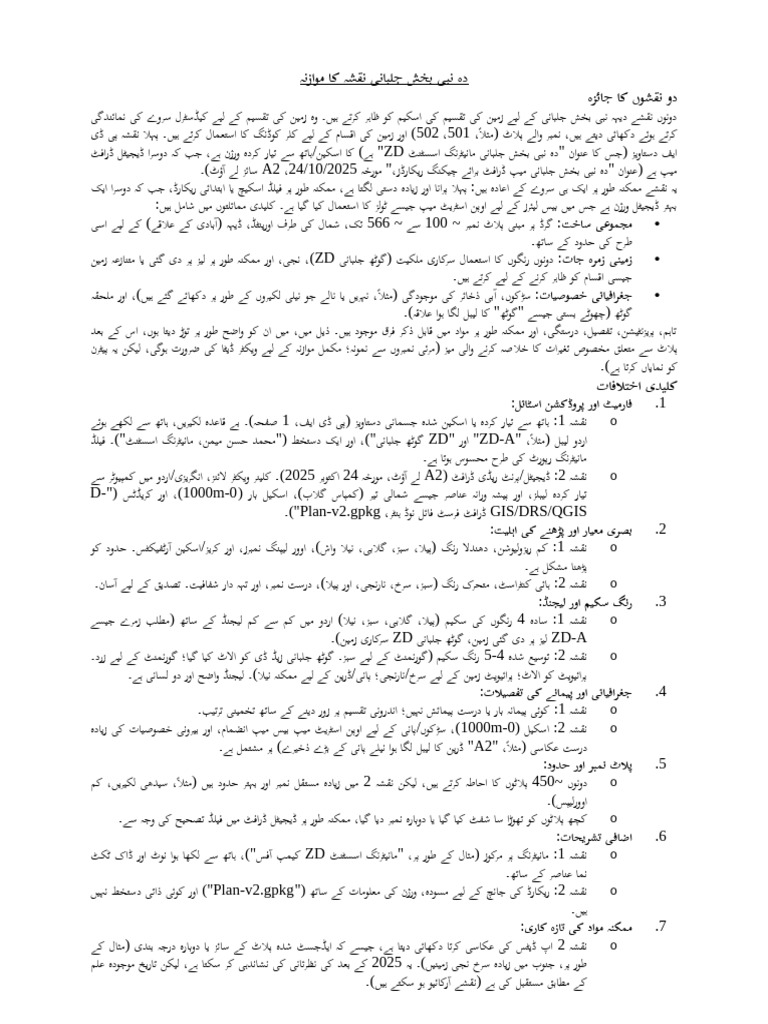 دہ نبی بخش جلبانی نقشہ کا موازنہ
دو نقشوں کا جائزہ
دونوں نقشے دیہہ نبی بخش جلبانی کے لیے زمین کی تقسیم کی اسکیم کو ظاہر کرتے ہیں۔ وہ زمین کی تقسیم کے لیے کیڈسٹرل سروے کی نمائندگی
کرتے ہوئے دکھائی دیتے ہیں، نمبر والے پلاٹ (مثلاً، 501، 502) اور زمین کی اقسام کے لیے کلر کوڈنگ کا استعمال کرتے ہیں۔ پہلا نقشہ پی ڈی
ایف دستاویز (جس کا عنوان "دہ نبی بخش جلبانی مانیٹرنگ اسسٹنٹ ZD" ہے) کا اسکین/ہاتھ سے تیار کردہ ورژن ہے، جب کہ دوسرا ڈیجیٹل ڈرافٹ
میپ ہے (عنوان "دہ نبی بخش جلبانی میپ ڈرافٹ برائے چیکنگ ریکارڈز،" مورخہ 24/10/2025، A2 سائز لے آؤٹ)۔
یہ نقشے ممکنہ طور پر ایک ہی سروے کے اعادہ ہیں: پہلا پرانا اور زیادہ دستی لگتا ہے، ممکنہ طور پر فیلڈ اسکیچ یا ابتدائی ریکارڈ، جب کہ دوسرا ایک
بہتر ڈیجیٹل ورژن ہے جس میں بیس لیئرز کے لیے اوپن اسٹریٹ میپ جیسے ٹولز کا استعمال کیا گیا ہے۔ کلیدی مماثلتوں میں شامل ہیں:
• مجموعی ساخت: گرڈ پر مبنی پلاٹ نمبر ~ 100 سے ~ 566 تک، شمال کی طرف اورینٹڈ، ڈیہہ (آبادی کے علاقے) کے لیے اسی
طرح کی حدود کے ساتھ۔
• زمینی زمرہ جات: دونوں رنگوں کا استعمال سرکاری ملکیت (گوٹھ جلبانی ZD)، نجی، اور ممکنہ طور پر لیز پر دی گئی یا متنازعہ زمین
جیسی اقسام کو ظاہر کرنے کے لیے کرتے ہیں۔
• جغرافیائی خصوصیات: سڑکوں، آبی ذخائر کی موجودگی (مثلاً، نہریں یا نالے جو نیلی لکیروں کے طور پر دکھائے گئے ہیں)، اور ملحقہ
گوٹھ (چھوٹے بستی جیسے "گوٹھ" کا لیبل لگا ہوا علاقہ)۔
تاہم، پریزنٹیشن، تفصیل، درستگی، اور ممکنہ طور پر مواد میں قابل ذکر فرق موجود ہیں۔ ذیل میں، میں ان کو واضح طور پر توڑ دیتا ہوں، اس کے بعد
پلاٹ سے متعلق مخصوص تغیرات کا خلاصہ کرنے والی میز (مرئی نمبروں سے نمونہ؛ مکمل موازنہ کے لیے ویکٹر ڈیٹا کی ضرورت ہوگی، لیکن یہ پیٹرن
کو نمایاں کرتا ہے)۔
کلیدی اختلافات
1. فارمیٹ اور پروڈکشن اسٹائل:
o نقشہ 1: ہاتھ سے تیار کردہ یا اسکین شدہ جسمانی دستاویز (پی ڈی ایف، 1 صفحہ)۔ بے قاعدہ لکیریں، ہاتھ سے لکھے ہوئے
اردو لیبل (مثلاً، "ZD-A" اور "ZD گوٹھ جلبانی")، اور ایک دستخط ("محمد حسن میمن، مانیٹرنگ اسسٹنٹ")۔ فیلڈ
مانیٹرنگ رپورٹ کی طرح محسوس ہوتا ہے۔
o نقشہ 2: ڈیجیٹل/پرنٹ ریڈی ڈرافٹ (A2 لے آؤٹ، مورخہ 24 اکتوبر 2025)۔ کلینر ویکٹر لائنز، انگریزی/اردو میں کمپیوٹر سے
تیار کردہ لیبلز، اور پیشہ ورانہ عناصر جیسے شمالی تیر (کمپاس گلاب)، اسکیل بار (0-1000m)، اور کریڈٹس ("D-
GIS/DRS/QGIS ڈرافٹ فرسٹ فائل نوڈ بنٹر، Plan-v2.gpkg")۔
2. بصری معیار اور پڑھنے کی اہلیت:
o نقشہ 1: کم ریزولیوشن، دھندلا رنگ (پیلا، سبز، گلابی، نیلا واش)، اوور لیپنگ نمبرز، اور کریز/اسکین آرٹفیکٹس۔ حدود کو
پڑھنا مشکل ہے۔
o نقشہ 2: ہائی کنٹراسٹ، متحرک رنگ (سبز، سرخ، نارنجی، اور پیلا)، درست نمبر، اور تہہ دار شفافیت۔ تصدیق کے لیے آسان۔
3. رنگ سکیم اور لیجنڈ:
o نقشہ 1: سادہ 4 رنگوں کی سکیم (پیلا، گلابی، سبز، نیلا) اردو میں کم سے کم لیجنڈ کے ساتھ (مطلب زمرے جیسے
ZD-A لیز پر دی گئی زمین، گوٹھ جلبانی ZD سرکاری زمین)۔
o نقشہ 2: توسیع شدہ 4-5 رنگ سکیم (گورنمنٹ کے لیے سبز۔ گوٹھ جلبانی زیڈ ڈی کو الاٹ کیا گیا؛ گورنمنٹ کے لیے زرد۔
پرائیویٹ کو الاٹ؛ پرائیویٹ زمین کے لیے سرخ/نارنجی؛ پانی/ڈرین کے لیے ممکنہ نیلا)۔ لیجنڈ واضح اور دو لسانی ہے۔
4. جغرافیائی اور پیمانے کی تفصیلات:
o نقشہ 1: کوئی پیمانہ بار یا درست پیمائش نہیں؛ اندرونی تقسیم پر زور دینے کے ساتھ تخمینی ترتیب۔
o نقشہ 2: اسکیل (0-1000m)، سڑکوں/پانی کے لیے اوپن اسٹریٹ میپ بیس میپ انضمام، اور بیرونی خصوصیات کی زیادہ
درست عکاسی (مثلاً، "A2" ڈرین کا لیبل لگا ہوا نیلے پانی کے بڑے ذخیرے) پر مشتمل ہے۔
5. پلاٹ نمبر اور حدود:
o دونوں ~450 پلاٹوں کا احاطہ کرتے ہیں، لیکن نقشہ 2 میں زیادہ مستقل نمبر اور بہتر حدود ہیں (مثلاً، سیدھی لکیریں، کم
اوورلیپس)۔
o کچھ پلاٹوں کو تھوڑا سا شفٹ کیا گیا یا دوبارہ نمبر دیا گیا، ممکنہ طور پر ڈیجیٹل ڈرافٹ میں فیلڈ تصحیح کی وجہ سے۔
6. اضافی تشریحات:
o نقشہ 1: مانیٹرنگ پر مرکوز (مثال کے طور پر، "مانیٹرنگ اسسٹنٹ ZD کیمپ آفس")، ہاتھ سے لکھا ہوا نوٹ اور ڈاک ٹکٹ
نما عناصر کے ساتھ۔
o نقشہ 2: ریکارڈ کی جانچ کے لیے مسودہ، ورژن کی معلومات کے ساتھ ("Plan-v2.gpkg") اور کوئی ذاتی دستخط نہیں
ہیں۔
7. ممکنہ مواد کی تازہ کاری:
o نقشہ 2 اپ ڈیٹس کی عکاسی کرتا دکھائی دیتا ہے، جیسے کہ ایڈجسٹ شدہ پلاٹ کے سائز یا دوبارہ درجہ بندی (مثال کے
طور پر، جنوب میں زیادہ سرخ نجی زمینیں)۔ یہ 2025 کے بعد کی نظرثانی کی نشاندہی کر سکتا ہے، لیکن تاریخ موجودہ علم
کے مطابق مستقبل کی ہے (نقشے آرکائیو ہو سکتے ہیں)۔